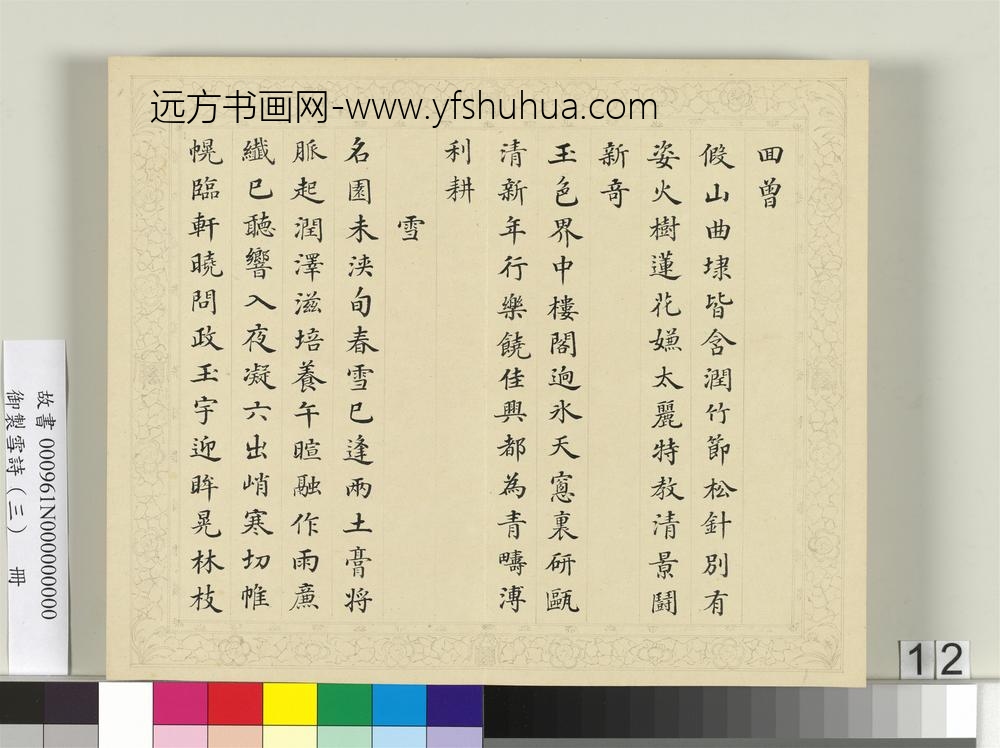 远方书画网-www.yfshuhua.com
囬曾
假山曲埭皆含潤竹節松針別有
姿火樹蓮花嫌太麗特教清景鬪
新奇
玉色界中樓閣迥氷天窻裏研甌
清新年行樂饒佳興都為青疇溥
利耕
雪
名園未浹旬春雪已逢兩土膏将
脈起潤澤滋培養午暄融作雨廉
纖已聽響入夜凝六出峭寒切帷
幌臨軒曉問政玉宇迎眸晃林枝
故書 000961N000000000
御製雪詩（三） 冊
12